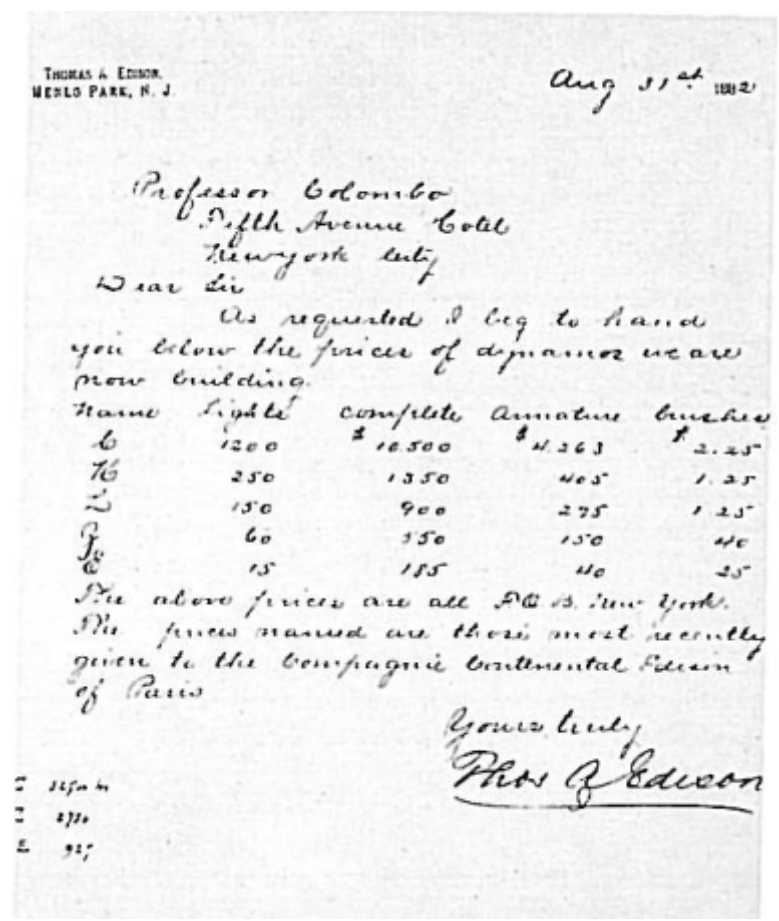 THOMAS A. EDISON,
MENLO PARK, N. J.
Aug 31st 1882
Professor Colombo
Fifth Avenue Hotel
New York City
Dear Sir
As requested I beg to hand
you below the prices of dynamos we are
now building.
Name Lights complete Armature brushes
C 1200 $ 10.500 $ 4.263 $ 2.25
K 250 1350 405 1.25
L 150 900 275 1.25
Z 60 550 150 40
E 15 155 40 25
The above prices are all F.O.B. New York.
The prices named are those most recently
given to the Compagnie Continental Edison
of Paris
Yours truly
Thos A Edison
E 925